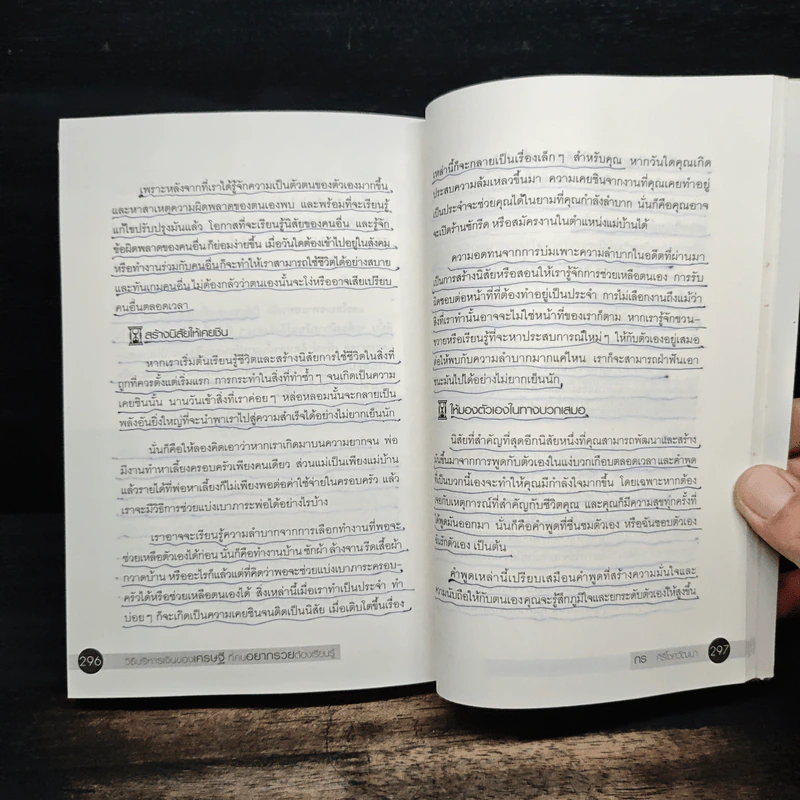 เพราะหลังจากที่เราได้รู้จักความเป็นตัวตนของตัวเองมากขึ้น
และหาสาเหตุความผิดพลาดของตนเองพบ และพร้อมที่จะเรียนรู้
แก้ไขปรับปรุงมันแล้ว โอกาสที่จะเรียนรู้นิสัยของคนอื่น และรู้จัก
ข้อผิดพลาดของคนอื่น ก็ย่อมง่ายขึ้น เมื่อวันใดต้องเข้าไปอยู่ในสังคม
หรือทำงานร่วมกับคนอื่น ก็จะทำให้เราสามารถใช้ชีวิตได้อย่างสบาย
และทันเกมคนอื่น ไม่ต้องกลัวว่าตนเองนั้นจะโง่หรืออาจเสียเปรียบ
คนอื่นตลอดเวลา
สร้างนิสัยให้เคยชิน
หากเราเริ่มต้นเรียนรู้ชีวิตและสร้างนิสัยการใช้ชีวิตในสิ่งที่
ถูกที่ควรตั้งแต่เริ่มแรก การกระทำในสิ่งที่ทำซ้ำๆ จนเกิดเป็นความ
เคยชินนั้น นานวันเข้าสิ่งที่เราค่อยๆ หล่อหลอมนั้นจะกลายเป็น
พลังอันยิ่งใหญ่ที่จะนำพาเราไปสู่ความสำเร็จได้อย่างไม่ยากเย็นนัก
นั่นก็คือให้ลองคิดเอาว่าหากเราเกิดมาบนความยากจน พ่อ
มีงานทำหาเลี้ยงครอบครัวเพียงคนเดียว ส่วนแม่เป็นเพียงแม่บ้าน
แล้วรายได้ที่พ่อหาเลี้ยงก็ไม่เพียงพอต่อค่าใช้จ่ายในครอบครัว แล้ว
เราจะมีวิธีการช่วยแบ่งเบาภาระพ่อได้อย่างไรบ้าง
เราอาจจะเรียนรู้ความลำบากจากการเลือกทำงานที่พอจะ
ช่วยเหลือตัวเองได้ก่อน นั่นก็คือทำงานบ้าน ซักผ้า ล้างจาน รีดเสื้อผ้า
กวาดบ้าน หรืออะไรก็แล้วแต่ที่คิดว่าพอจะช่วยแบ่งเบาภาระครอบ-
ครัวได้หรือช่วยเหลือตนเองได้ สิ่งเหล่านี้เมื่อเราทำเป็นประจำ ทำ
บ่อยๆ ก็จะเกิดเป็นความเคยชินจนติดเป็นนิสัย เมื่อเติบโตขึ้นเรื่อง
296 วิธีบริหารเงินของเศรษฐี ที่คนอยากรวยต้องเรียนรู้
เหล่านี้ก็จะกลายเป็นเรื่องเล็กๆ สำหรับคุณ หากวันใดคุณเกิด
ประสบความล้มเหลวขึ้นมา ความเคยชินจากงานที่คุณเคยทำอยู่
เป็นประจำจะช่วยคุณได้ในยามที่คุณกำลังลำบาก นั่นก็คือคุณอาจ
จะเปิดร้านซักรีด หรือสมัครงานในตำแหน่งแม่บ้านได้
ความอดทนจากการบ่มเพาะความลำบากในอดีตที่ผ่านมา
เป็นการสร้างนิสัยหรือสอนให้เรารู้จักการช่วยเหลือตนเอง การรับ
ผิดชอบต่อหน้าที่ที่ต้องทำอยู่เป็นประจำ การไม่เลือกงานถึงแม้ว่า
สิ่งที่เราทำนั้นอาจจะไม่ใช่หน้าที่ของเราก็ตาม หากเรารู้จักขวน-
ขวายหรือเรียนรู้ที่จะหาประสบการณ์ใหม่ๆ ให้กับตัวเองอยู่เสมอ
ต่อให้พบกับความลำบากมากแค่ไหน เราก็จะสามารถฝ่าฟันเอา
ชนะมันไปได้อย่างไม่ยากเย็นนัก
ให้มองตัวเองในทางบวกเสมอ
นิสัยที่สำคัญที่สุดอีกนิสัยหนึ่งที่คุณสามารถพัฒนาและสร้าง
มันขึ้นมาจากการพูดกับตัวเองในแง่บวกเกือบตลอดเวลาและคำพูด
ที่เป็นบวกนี้เองจะทำให้คุณมีกำลังใจมากขึ้น โดยเฉพาะหากต้อง
เจอกับเหตุการณ์ที่สำคัญกับชีวิตคุณ และคุณก็มีความสุขทุกครั้งที่
ได้พูดมันออกมา นั่นก็คือคำพูดที่ชื่นชมตัวเอง หรือฉันชอบตัวเอง
ฉันรักตัวเอง เป็นต้น
คำพูดเหล่านี้เปรียบเสมือนคำพูดที่สร้างความมั่นใจและ
ความนับถือให้กับตนเองคุณจะรู้สึกภูมิใจและยกระดับตัวเองให้สูงขึ้น
กร ศิริโชควัฒนา 297